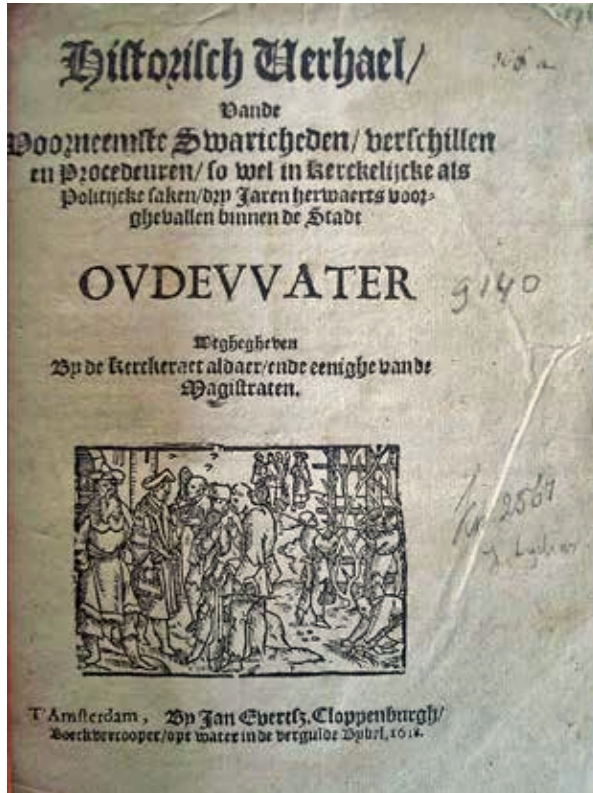 Historisch Verhael/
Vande
Voorneemste Swaricheden/ verschillen
en Procedeuren/ so wel in kerckelijcke als
Politijcke saken/dry Jaren herwaerts voor-
ghevallen binnen de Stadt
OVDEVVATER
Wtghegheven
By de kerckeraet aldaer/ende eenighe vande
Magistraten.
9140
Kn 2567
T'Amsterdam, By Jan Evertsz. Cloppenburgh/
Boeckvercooper/opt water inde vergulde Bybel, 1618.